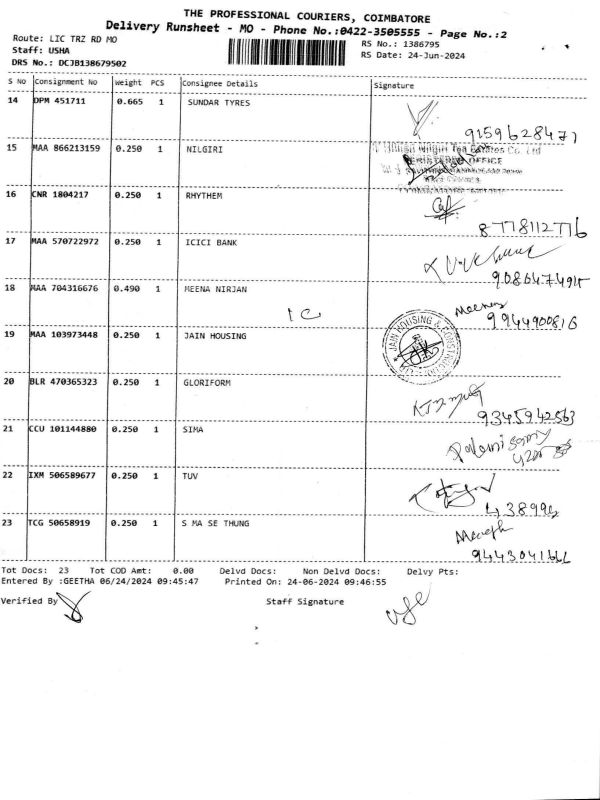 THE PROFESSIONAL COURIERS, COIMBATORE
Delivery Runsheet - MO - Phone No.:0422-3505555 - Page No.:2
Route: LIC TRZ RD MO
RS No.: 1386795
Staff: USHA
RS Date: 24-Jun-2024
DRS No.: DCJB138679502
S No Consignment No Weight PCS Consignee Details Signature
14 DPM 451711 0.665 1 SUNDAR TYRES
9159628471
15 MAA 866213159 0.250 1 NILGIRI
REGISTERED OFFICE
16 CNR 1804217 0.250 1 RHYTHEM
8778112776
17 MAA 570722972 0.250 1 ICICI BANK
18 MAA 704316676 0.490 1 MEENA NIRJAN
IC
Meena
9944900816
19 MAA 103973448 0.250 1 JAIN HOUSING
JAIN HOUSING &
20 BLR 470365323 0.250 1 GLORIFORM
9345942563
21 CCU 101144880 0.250 1 SIMA
Palanisamy
22 IXM 506589677 0.250 1 TUV
23 TCG 50658919 0.250 1 S MA SE THUNG
Tot Docs: 23 Tot COD Amt: 0.00 Delvd Docs: Non Delvd Docs: Delvy Pts:
Entered By :GEETHA 06/24/2024 09:45:47 Printed On: 24-06-2024 09:46:55
Verified By Staff Signature